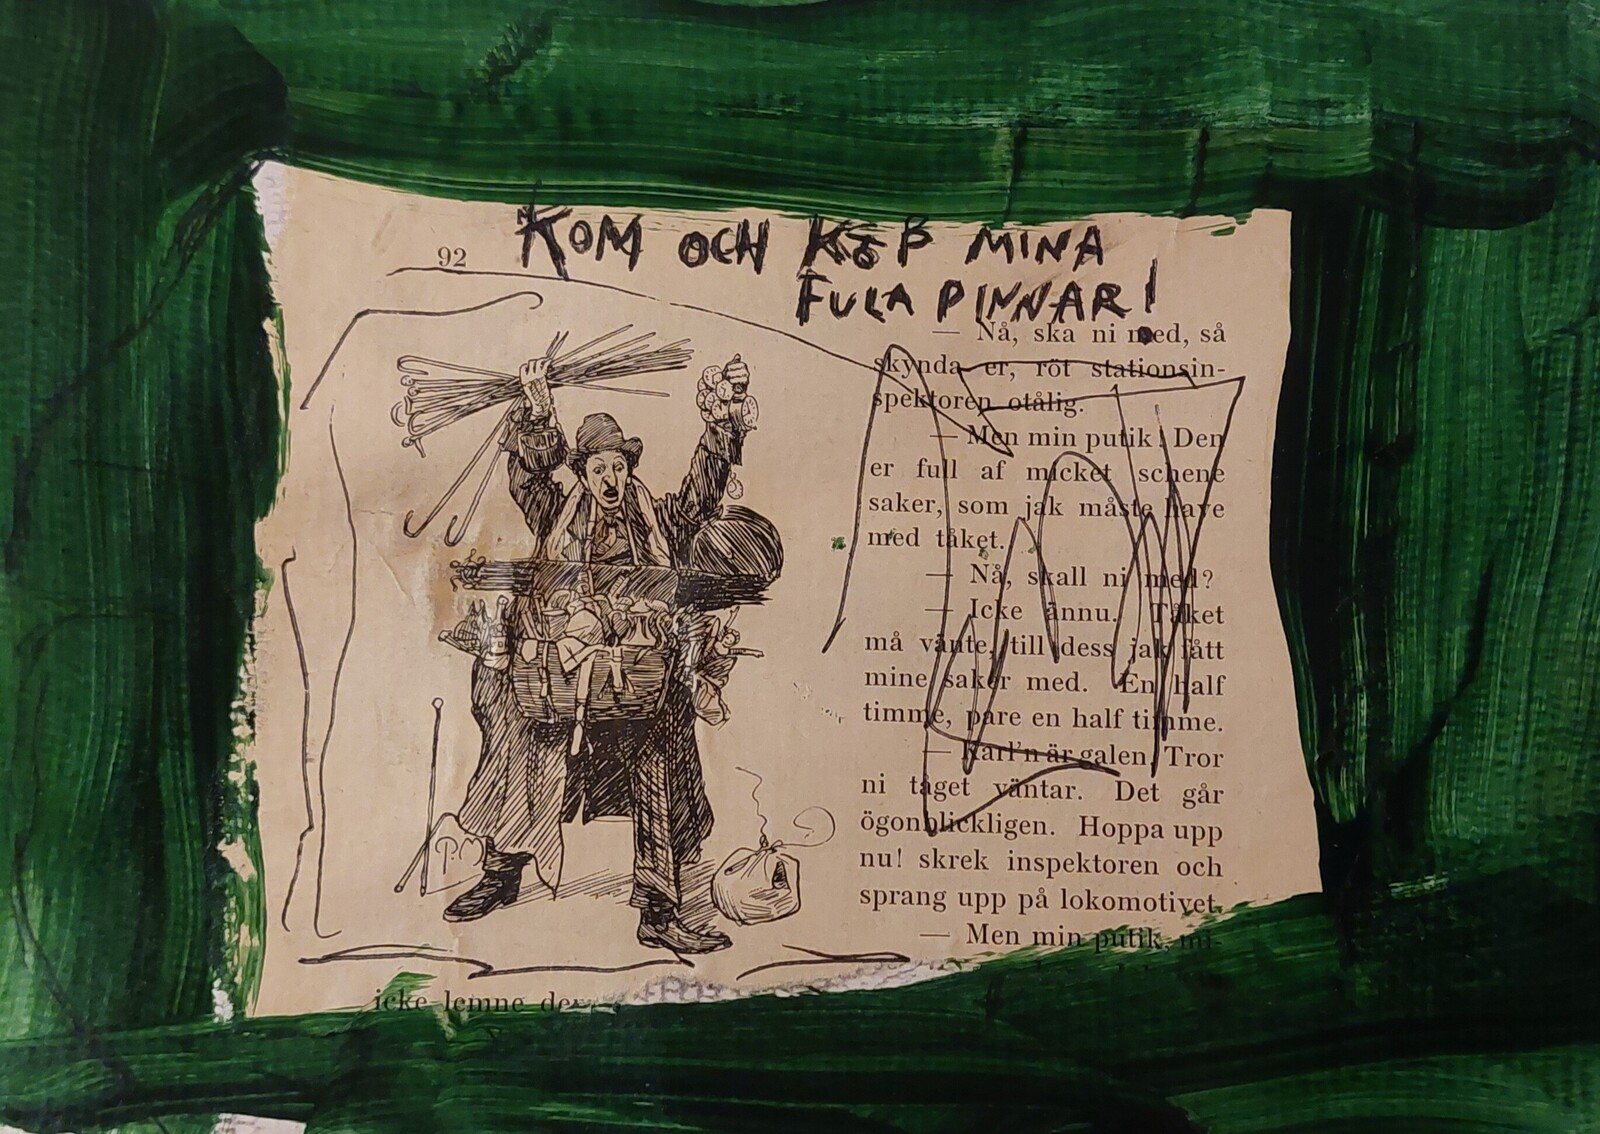 92
KOM OCH KÖP MINA
FULA PINNAR!
— Nå, ska ni med, så
skynda er, röt stationsin-
spektoren otålig.
— Men min putik! Den
er full af micket schene
saker, som jak måste have
med tåket.
— Nå, skall ni med?
— Icke ännu. Tåket
må vänte, till dess jak fått
mine saker med. En half
timme, pare en half timme.
— Karl'n är galen. Tror
ni tåget väntar. Det går
ögonblickligen. Hoppa upp
nu! skrek inspektoren och
sprang upp på lokomotivet.
— Men min putik, mi-
icke lemne der
P.M